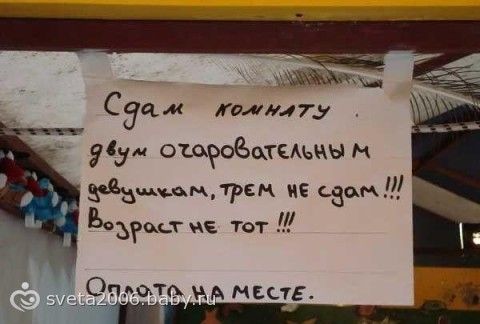 Сдам комнату.
двум очаровательным
девушкам, трем не сдам!!!
Возраст не тот!!!
Оплата на месте.
sveta2006.baby.ru